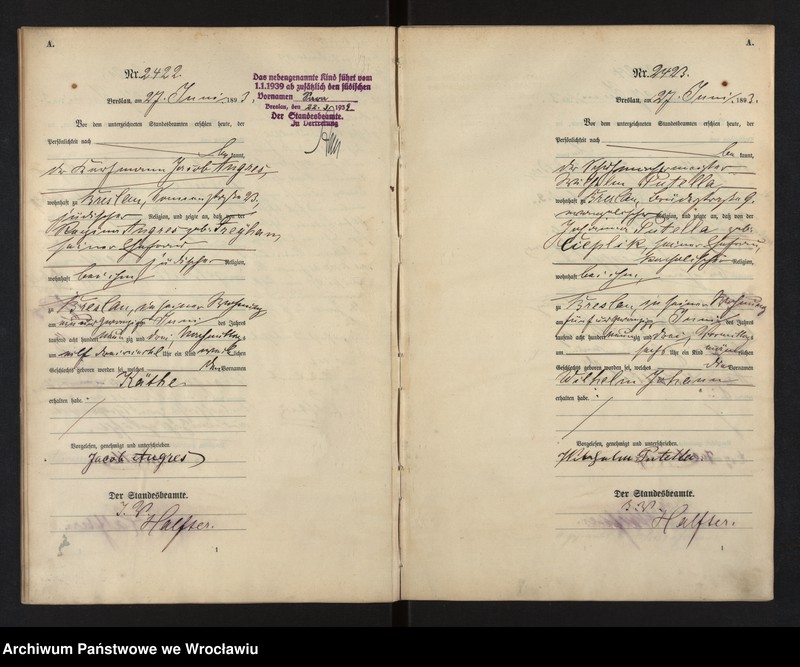 A.
Nr. 2422.
Breslau, am 27. Juni 1893.
Vor dem unterzeichneten Standesbeamten erschien heute, der
Persönlichkeit nach
kannt,
der Kaufmann Jacob Angres,
wohnhaft zu Breslau, 23,
jüdischer Religion, und zeigte an, daß von der
Angres geb. Freyhan,
seiner Ehefrau
jüdischer Religion,
wohnhaft bei ihm
zu Breslau, in seiner Wohnung
am Juni des Jahres
tausend acht hundert neunzig und drei, Nachmittags
um elf dreiviertel Uhr ein Kind weiblichen
Geschlechts geboren worden sei, welches den Vornamen
Käthe
erhalten habe.
Vorgelesen, genehmigt und unterschrieben
Jacob Angres
Der Standesbeamte.
Halfter.
1
Das nebengenannte Kind führt vom
1.1.1939 ab zusätzlich den jüdischen
Vornamen Sara
Breslau, den 22. 3. 1939
Der Standesbeamte.
In Vertretung
A.
Nr. 2423.
Breslau, am 27. Juni 1893.
Vor dem unterzeichneten Standesbeamten erschien heute, der
Persönlichkeit nach
kannt,
der Schuhmachermeister
Wilhelm Putella,
wohnhaft zu Breslau, 9,
evangelischer Religion, und zeigte an, daß von der
Johanna Putella geb.
Cieplik, seiner Ehefrau,
katholischer Religion,
wohnhaft bei ihm,
zu Breslau, in seiner Wohnung
am fünf und zwanzig Juni des Jahres
tausend acht hundert neunzig und drei, Vormittags
um sechs Uhr ein Kind männlichen
Geschlechts geboren worden sei, welches die Vornamen
Wilhelm Johann
erhalten habe.
Vorgelesen, genehmigt und unterschrieben
Wilhelm Putella.
Der Standesbeamte.
Halfter.
1
Archiwum Państwowe we Wrocławiu